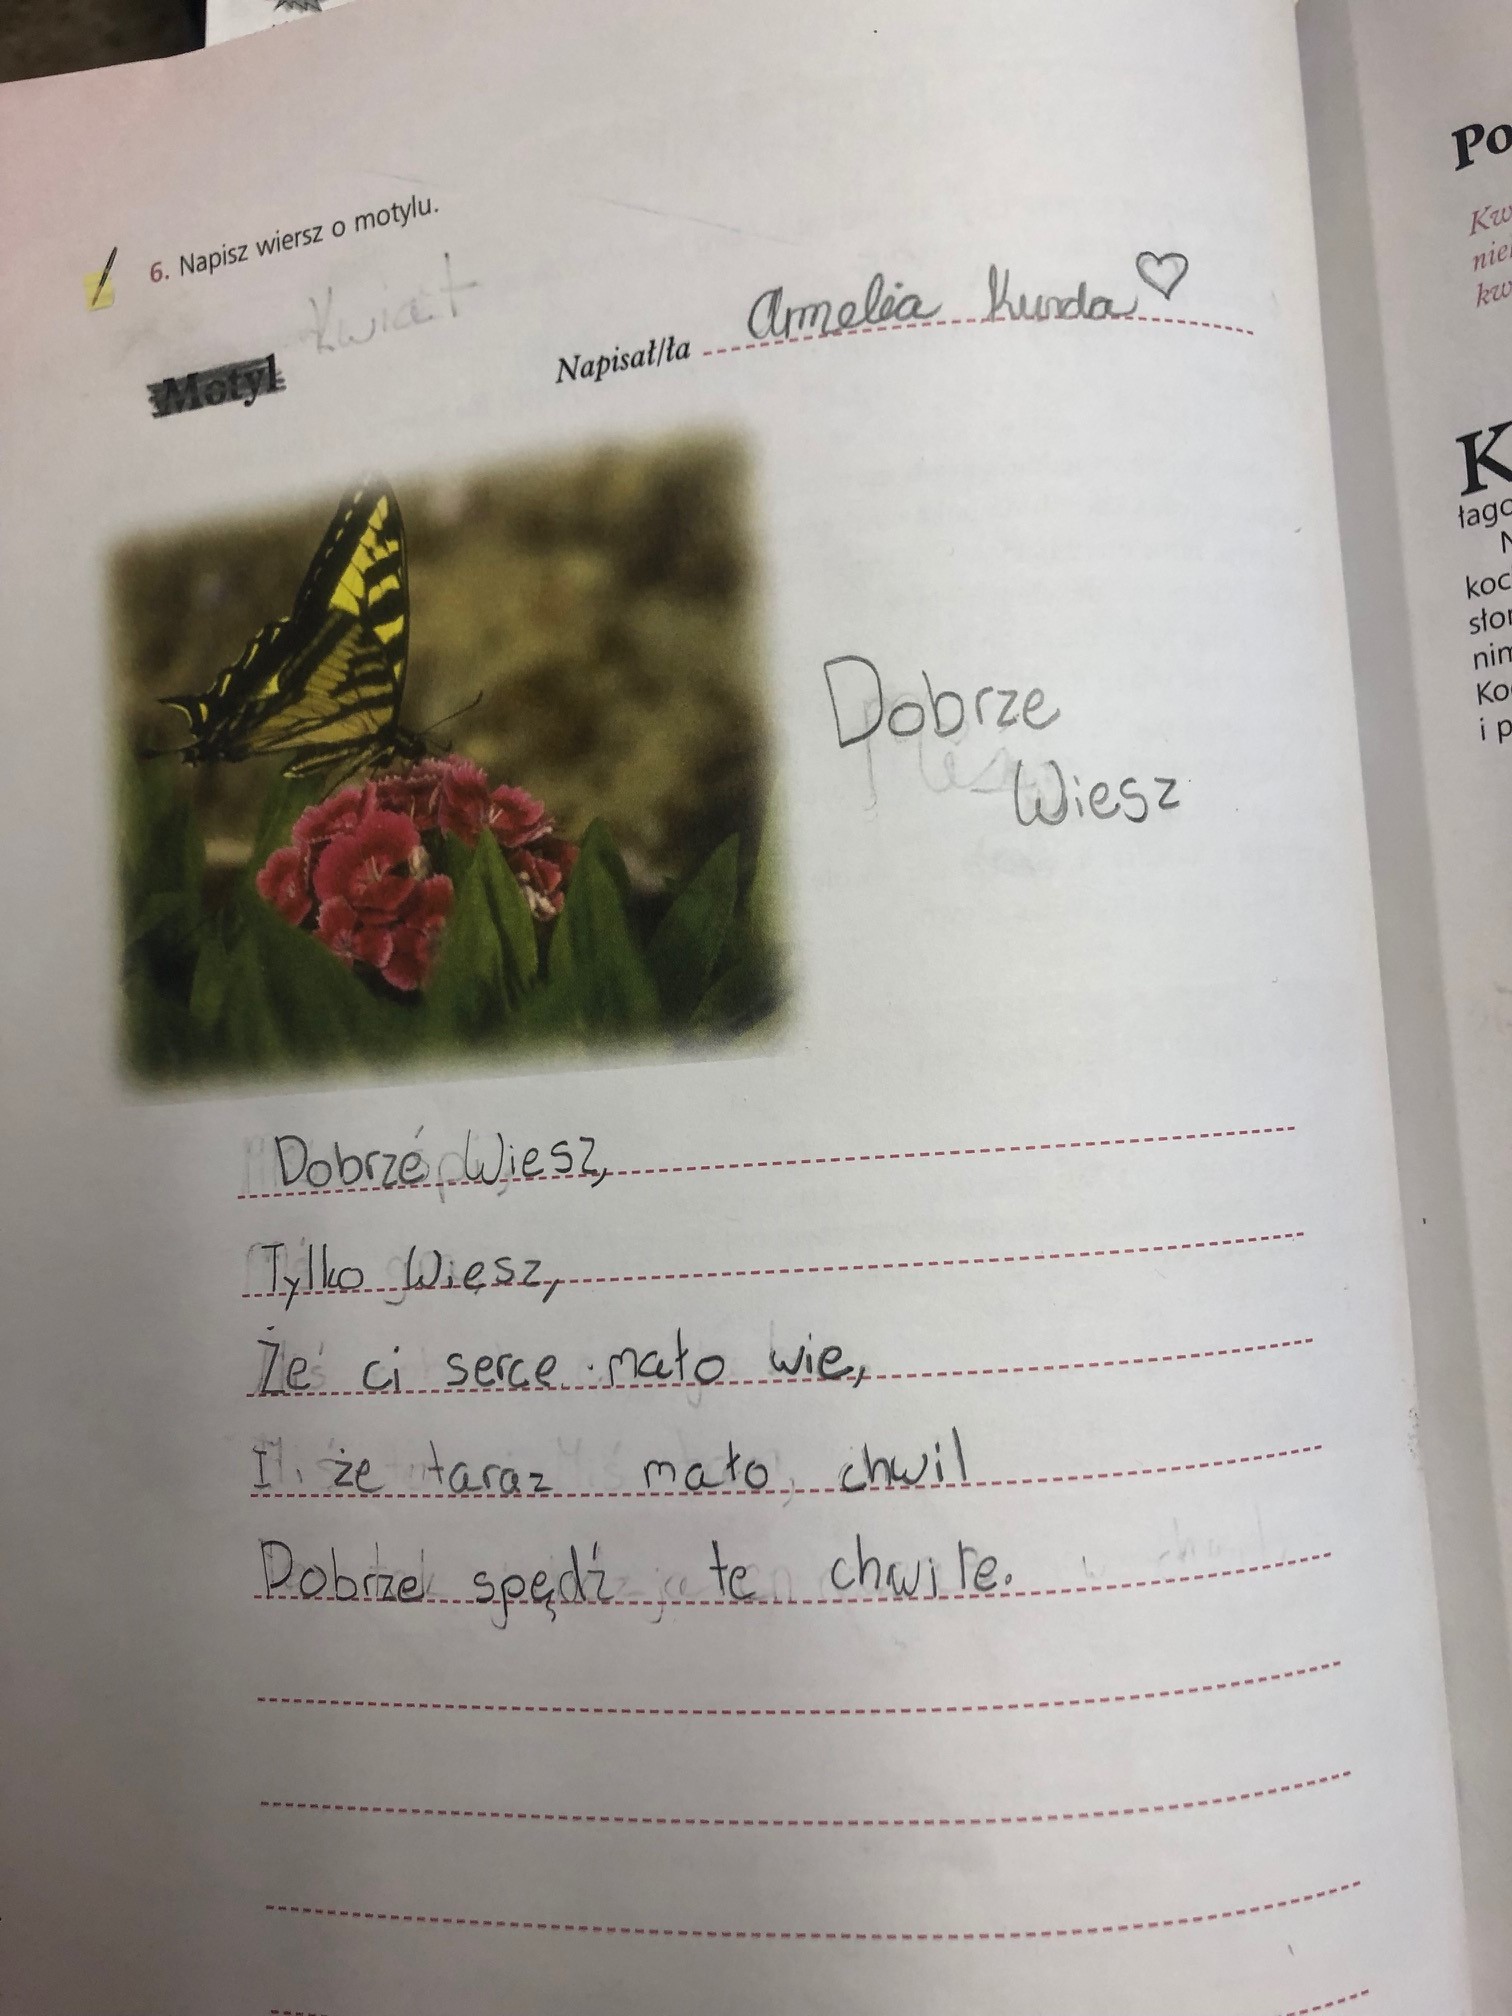 6. Napisz wiersz o motylu.
Kwiat
Motyl
Napisał/ła Amelia Kurda
Dobrze
Wiesz
Dobrze Wiesz,
Tylko Wiesz,
Że ci serce mało wie,
I że taraz mało chwil
Dobrze spędź te chwile.
Po
Kw
nie
kw
K
łago
N
koc
słon
nim
Ko
i p